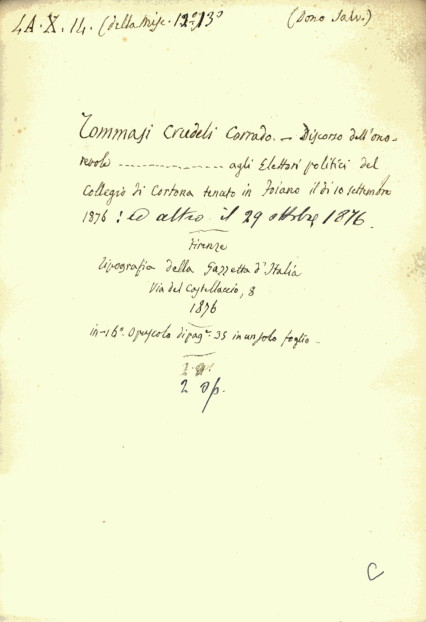 4A. X. 14. (della Misc. 12ª) 13ª (Dono Salv.)
Tommasi Crudeli Corrado. — Discorso dell'ono-
revole ---------------- agli Elettori politici del
Collegio di Cortona tenuto in Foiano il dì 10 settembre
1876 : ed altro il 29 ottobre 1876.
Firenze
Tipografia della Gazzetta d'Italia
Via del Castellaccio, 8
1876
in-16º. Opuscolo di pagne 35 in un solo foglio —
2 op.
C